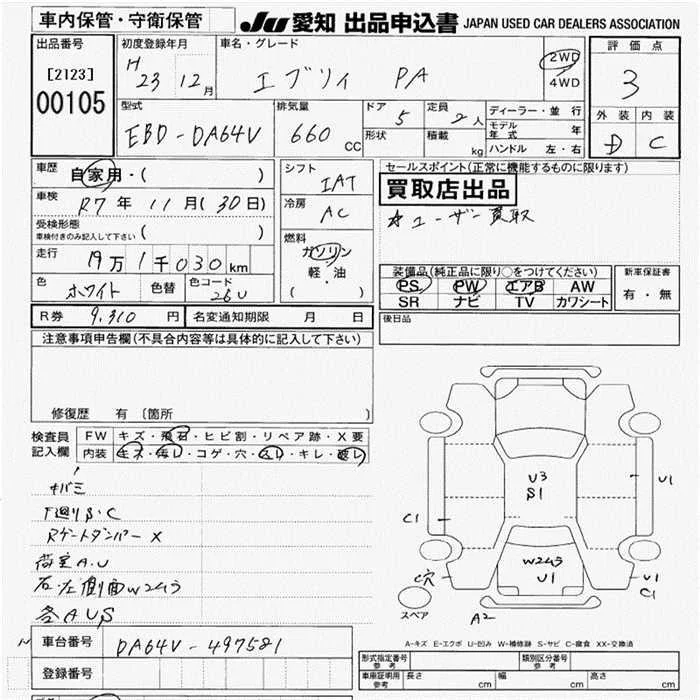 車内保管・守衛保管 JU 愛知 出品申込書 JAPAN USED CAR DEALERS ASSOCIATION
出品番号
[2123]
00105
初度登録年月
H 23 12月
車名・グレード
エブリィ PA
2WD
4WD
評価点
3
外装 内装
D C
型式
EBD-DA64V
排気量
660 cc
ドア 5
形状
定員 2人
積載 kg
ディーラー・並行
モデル年式 年
ハンドル 左・右
車歴
自家用・( )
車検
R7年 11月(30日)
受検形態
車検付きのみ記入して下さい ( )
走行
19万1千030km
色 ホワイト 色替 色コード 26U
シフト
IAT
冷房
AC
燃料
ガソリン
軽・油
( )
セールスポイント(正常に機能するものに限ります)
買取店出品
☆ユーザー買取
装備品(純正品に限り○をつけてください)
PS PW エアB AW
SR ナビ TV カワシート
新車保証書
有・無
R券 9,310 円 名変通知期限 月 日
後日品
注意事項申告欄(不具合内容等は具体的に記入して下さい)
修復歴 有 [箇所 ]
検査員記入欄
FW キズ・飛石・ヒビ割・リペア跡・X要
内装 キズ・汚レ・コゲ・穴・スレ・キレ・破レ
キバミ
下廻りS・C
Rゲートダンパー X
荷室A.U
右.左側面W2ムラ
各AUS
U3
S1
U1
C1
W2ムラ
U1
C穴
U1
C1
スペア
A2
A-キズ E-エクボ U-凹み W-補修跡 S-サビ C-腐食 XX-交換済
車台番号 DA64V-497581
登録番号
形式指定番号 参考
類別区分番号 参考
車庫証明用 参考 長さ cm 幅 cm 高さ cm